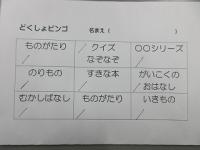 どくしょビンゴ 名まえ( )
ものがたり / クイズ なぞなぞ 〇〇シリーズ
/ /
のりもの すきな本 がいこくの おはなし
/ / /
むかしばなし ものがたり いきもの
/ / /